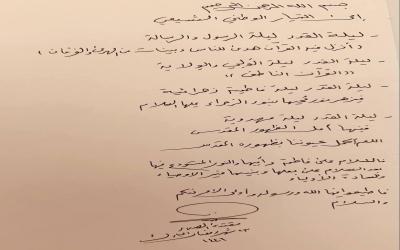 بسم الله الرحمن الرحيم
إلى: التيار الوطني الشيعي
- ليلة القدر ليلة الرسول والرسالة
وأنزل فيه القرآن هدى للناس وبينات من الهدى والفرقان
- ليلة القدر ليلة الولي والولاية
((القرآن الناطق))
- ليلة القدر ليلة فاطمية زهرائية
بنور الزهراء عليها السلام
- ليلة القدر ليلة مهدوية
فيها أمل الظهور المقدس
اللهم كحل عيوننا بظهوره المقدس
فالسلام على فاطمة وأبيها والسر المستودع فيها
بعد السلام على بعلها وبنيها خير الأوصياء
وقادة الأولياء
فأطيعوا الله ورسوله وأولي الأمر منكم
والسلام
مقتدى الصدر
شهر رمضان
١٤٤٦